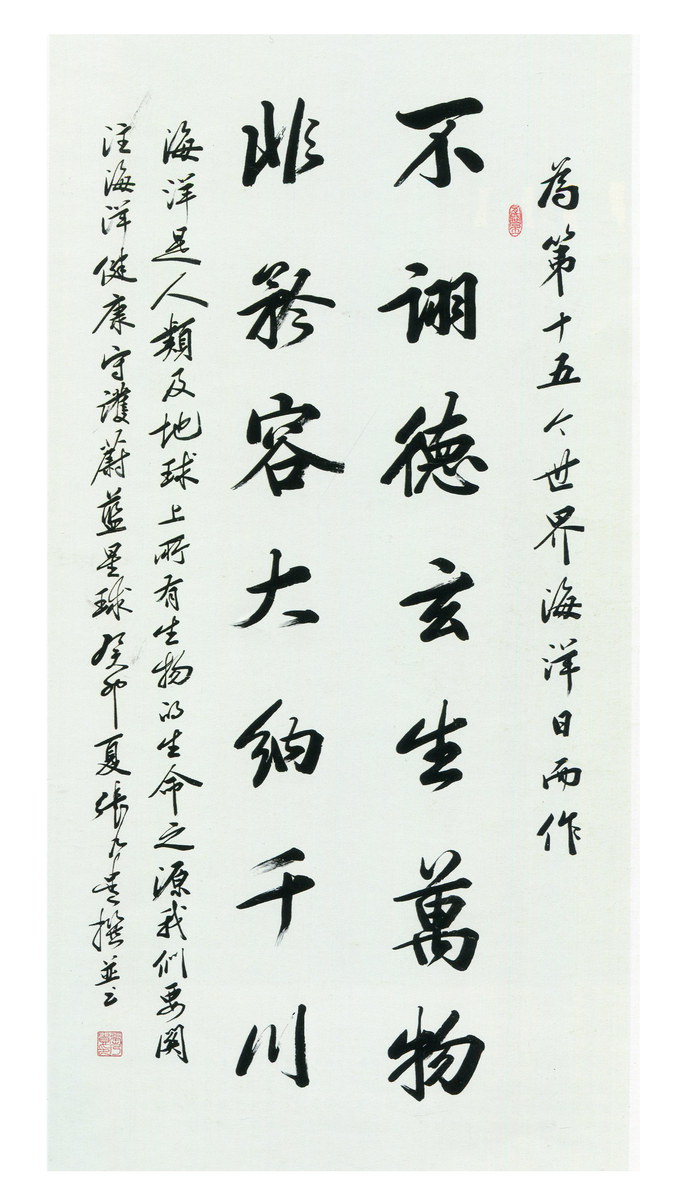 為第十五个世界海洋日而作
不詡德玄生萬物
非矜容大納千川
海洋是人類及地球上所有生物的生命之源我们要関
注海洋健康守護蔚藍星球癸卯夏張撰並